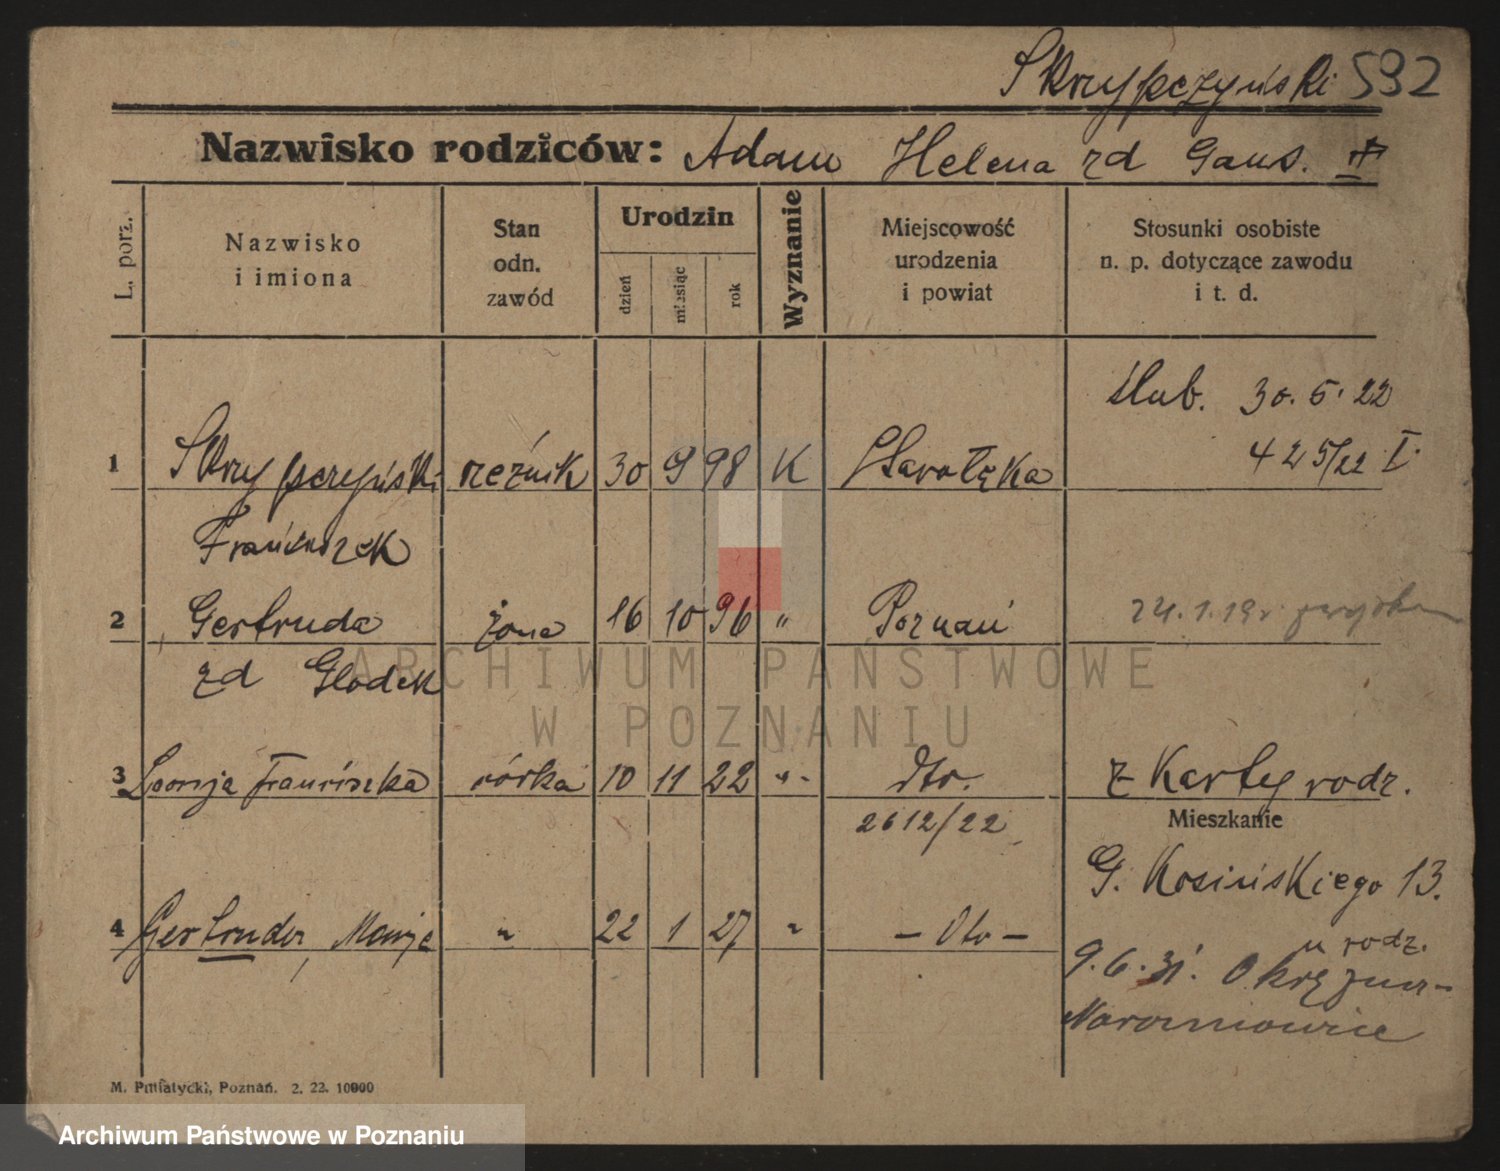 Skrzypczyński 592
Nazwisko rodziców: Adam Helena zd Gans.
L. porz.
Nazwisko
i imiona
Stan
odn.
zawód
Urodzin
dzień
miesiąc
rok
Wyznanie
Miejscowość
urodzenia
i powiat
Stosunki osobiste
n. p. dotyczące zawodu
i t. d.
ślub. 30.5.22
425/22 I.
1 Skrzypczyński rzeźnik 30 9 98 K Starołęka
Franciszek
2 Gertruda żona 16 10 96 " Poznań 24.1.19
zd Glodek
3 Franciszka córka 10 11 22 " dto. z Karty rodz.
2612/22
Mieszkanie
G. Kosińskiego 13.
4 Gertruda, Marja " 22 1 27 " - dto -
u rodz.
9.6.31. Okrężna-
Naramowice
M. Putiatycki, Poznań. 2. 22. 10000
ARCHIWUM PAŃSTWOWE
W POZNANIU
Archiwum Państwowe w Poznaniu